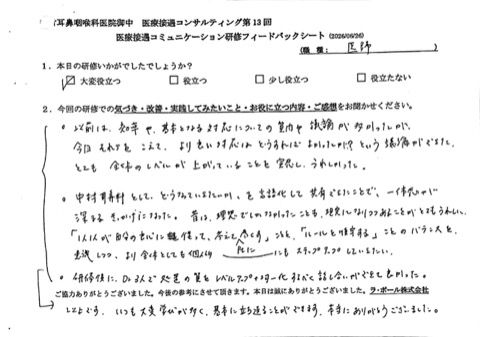 耳鼻咽喉科医院御中 医療接遇コンサルティング第13回
医療接遇コミュニケーション研修フィードバックシート (2026/06/26)
(職種: 医師 )
1. 本日の研修いかがでしたでしょうか?
☑ 大変役立つ □ 役立つ □ 少し役立つ □ 役立たない
2. 今回の研修での気づき・改善・実践してみたいこと・お役に立つ内容・ご感想をお聞かせください。
○ 以前は、知年や、基本となる対応についての質問や議論が多かったが、
今日それをこえて、より良い対応にはどうすればよかったか?という議論ができた。
とても全体のレベルが上がっていることを実感し、うれしかった。
○ 中村耳鼻科として、どうなっていきたいか、を言語化して共有できたことで、一体感が
深まるきっかけになった。昔は、理想でしかなかったことも、現実になりつつあることがとてもうれしい。
「1人1人が自分の 考えて 」ことと、「ルールを 」ことのバランスを、
意識しつつ、より全体としても個人の にもステップアップしていきたい。
○ 研修後に、Dr.3人で処置の質をレベルアップ するべく話し合いができて良かった。
ご協力ありがとうございました。今後の参考にさせて頂きます。本日は誠にありがとうございました。ラ・ポール株式会社
いつも大変学びが多く、基本に立ち返ることができます。本当にありがとうございました。